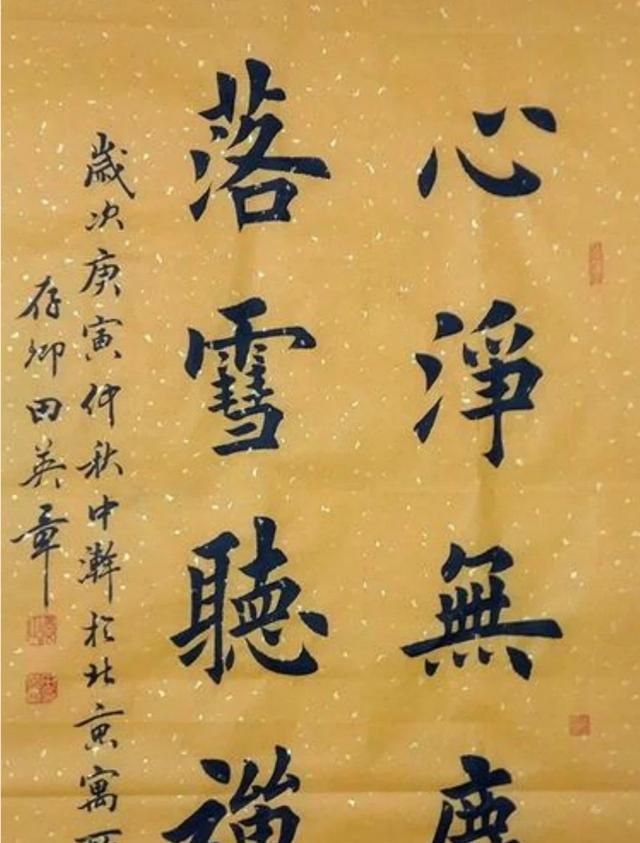 心淨無塵
落雪聽禪
歲次庚寅仲秋中澣於北京寓所
存卿田英章